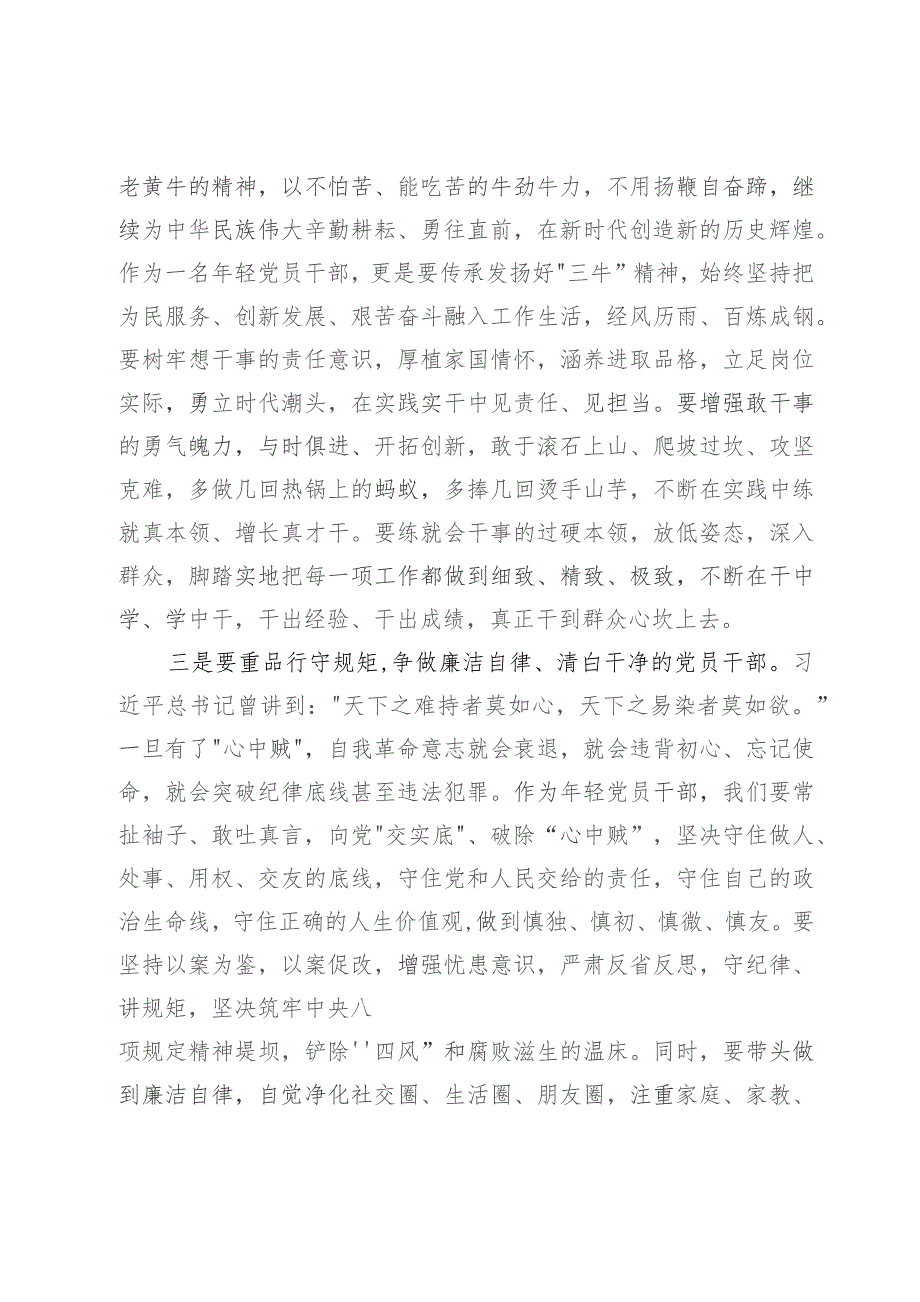 老黄牛的精神，以不怕苦、能吃苦的牛劲牛力，不用扬鞭自奋蹄，继
续为中华民族伟大辛勤耕耘、勇往直前，在新时代创造新的历史辉煌。
作为一名年轻党员干部，更是要传承发扬好"三牛”精神，始终坚持把
为民服务、创新发展、艰苦奋斗融入工作生活，经风历雨、百炼成钢。
要树牢想干事的责任意识，厚植家国情怀，涵养进取品格，立足岗位
实际，勇立时代潮头，在实践实干中见责任、见担当。要增强敢干事
的勇气魄力，与时俱进、开拓创新，敢于滚石上山、爬坡过坎、攻坚
克难，多做几回热锅上的蚂蚁，多捧几回烫手山芋，不断在实践中练
就真本领、增长真才干。要练就会干事的过硬本领，放低姿态，深入
群众，脚踏实地把每一项工作都做到细致、精致、极致，不断在干中
学、学中干，干出经验、干出成绩，真正干到群众心坎上去。
三是要重品行守规矩,争做廉洁自律、清白干净的党员干部。习
近平总书记曾讲到："天下之难持者莫如心，天下之易染者莫如欲。”
一旦有了"心中贼"，自我革命意志就会衰退，就会违背初心、忘记使
命，就会突破纪律底线甚至违法犯罪。作为年轻党员干部，我们要常
扯袖子、敢吐真言，向党"交实底"、破除“心中贼”，坚决守住做人、
处事、用权、交友的底线，守住党和人民交给的责任，守住自己的政
治生命线，守住正确的人生价值观,做到慎独、慎初、慎微、慎友。要
坚持以案为鉴，以案促改，增强忧患意识，严肃反省反思，守纪律、
讲规矩，坚决筑牢中央八
项规定精神堤坝，铲除''四风”和腐败滋生的温床。同时，要带头做
到廉洁自律，自觉净化社交圈、生活圈、朋友圈，注重家庭、家教、